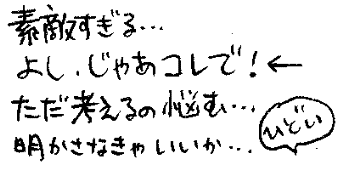 素敵すぎる…
よし、じゃあコレで!←
ただ考えるの悩む…
明かさなきゃいいか…
ひどい